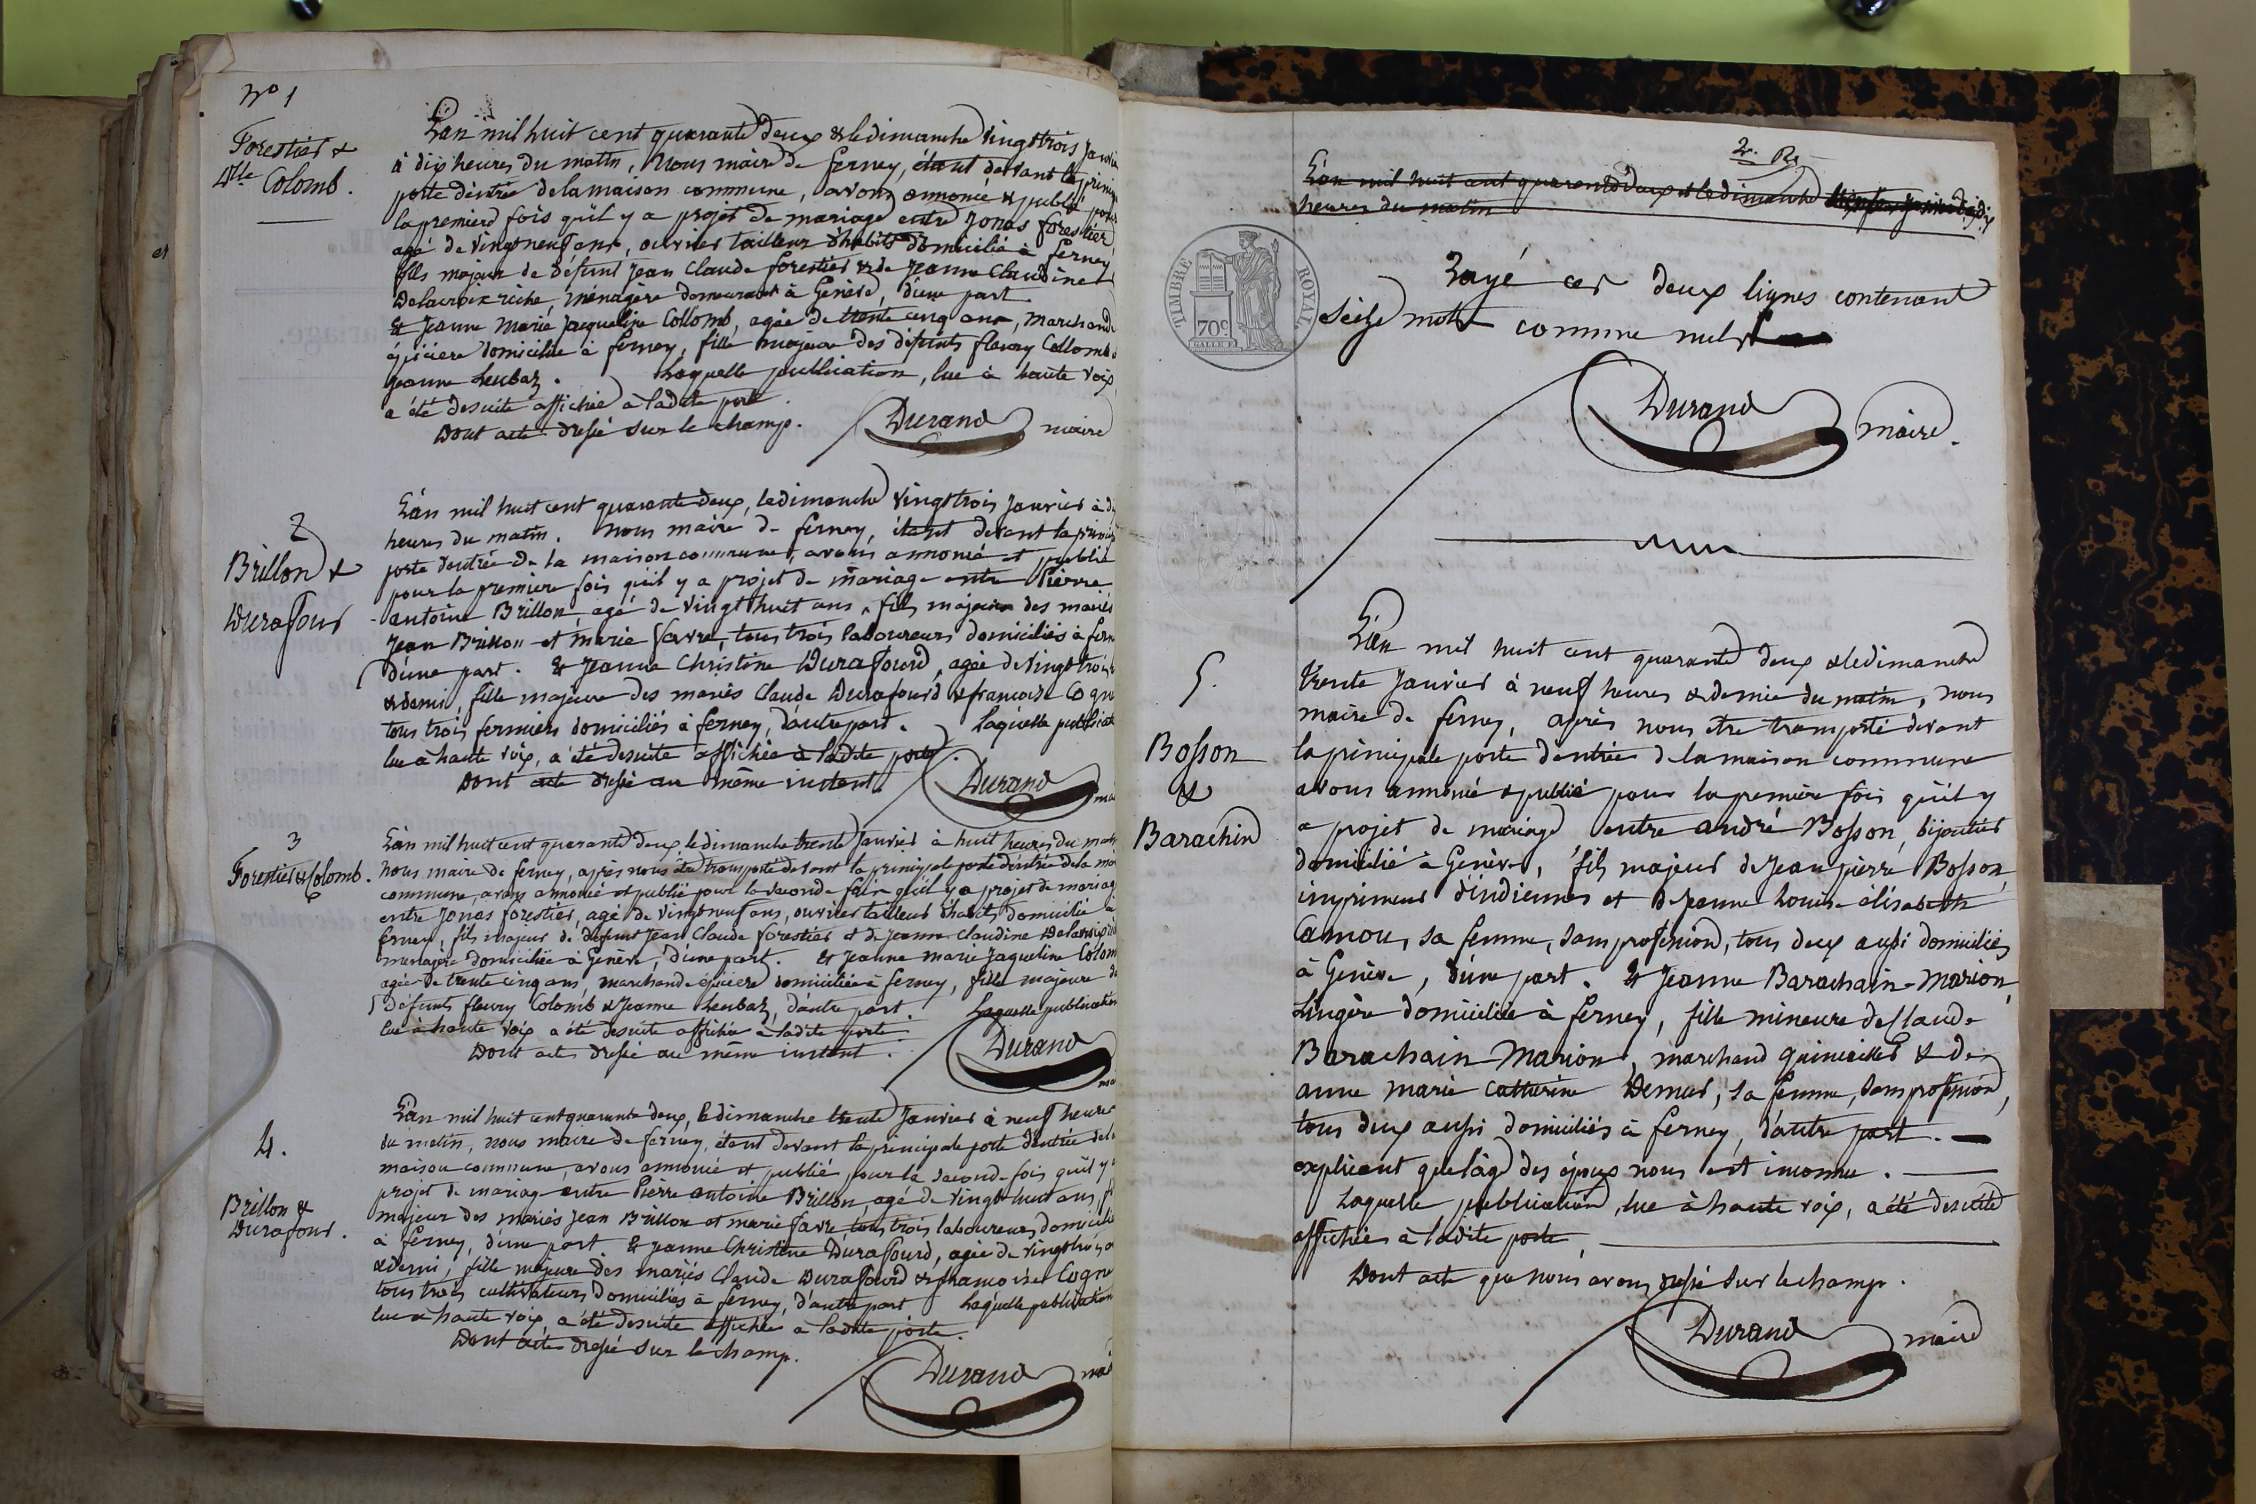 No 1
Forestier &
Dlle Colomb.
L'an mil huit cent quarante deux & le dimanche vingt trois janvier
à dix heures du matin, nous maire de ferney, étant devant la
porte d'entrée de la maison commune, avons annoncé & publié pour
la premiere fois qu'il y a projet de mariage entre Jonas forestier
agé de vingt neuf ans, ouvrier tailleur d'habits domicilié à ferney
fils majeur de défunt Jean Claude forestier & de Jeanne Claudine
Delacroix riche, ménagère demeurant à Genève, d'une part
Et Jeanne Marie Jacqueline Collomb, agée de trente cinq ans, marchande
épiciere domiciliée à ferney, fille majeure des défunts fleury Collomb &
jeanne Leubaz. Laquelle publication, lue à haute voix
a été desuite affichée à ladite porte.
Dont acte dressé sur le champ.
Durand maire
2
Brillon &
Durafour
L'an mil huit cent quarante deux, le dimanche vingt trois janvier à
heures du matin. nous maire de ferney, étant devant la
porte d'entrée de la maison commune, avons annoncé et publié
pour la premiere fois qu'il y a projet de mariage entre Pierre
antoine Brillon, agé de vingt huit ans, fils majeur des mariés
Jean Brillon et marie favre, tous trois laboureurs domiciliés à
d'une part. Et Jeanne Christine Durafourd, agée de vingt trois
& demi, fille majeure des mariés Claude Durafourd & françoise
tous trois fermiers domiciliés à ferney, d'autre part. laquelle
lue à haute voix, a été desuite affichée à ladite porte
Dont acte dressé au même instant.
Durand
3
Forestier & Colomb.
L'an mil huit cent quarante deux, le dimanche trente janvier à huit heures du
nous maire de ferney, après nous être transporté devant la principale porte d'entrée de la
commune, avons annoncé et publié pour la seconde fois qu'il y a projet de
entre Jonas forestier, agé de vingt neuf ans, ouvrier tailleur d'habits, domicilié à
ferney, fils majeur de défunt Jean Claude forestier et de jeanne claudine
ménagère domiciliée à Genève, d'une part. Et Jeanne marie Jaqueline
agée de trente cinq ans, marchande épiciere domiciliée à ferney, fille majeure
Défunts fleury Colomb & Jeanne Leubaz, d'autre part. Laquelle publication
lue à haute voix a été desuite affichée à ladite porte
Dont acte dressé au même instant.
Durand
4.
Brillon &
Durafour.
L'an mil huit cent quarante deux, le dimanche trente janvier à neuf heures
du matin, nous maire de ferney, étant devant la principale porte d'entrée de
maison commune, avons annoncé et publié pour la seconde fois qu'il y
projet de mariage entre Pierre antoine Brillon, agé de vingt huit ans
majeur des mariés Jean Brillon et marie favre, tous trois laboureurs
à ferney, d'une part. Et Jeanne Christine Durafourd, agée de
& demi, fille majeure des mariés Claude Durafourd & françoise
tous trois cultivateurs domiciliés à ferney, d'autre part laquelle publication
lue à haute voix, a été desuite affichée à ladite porte.
Dont acte dressé sur le champ.
Durand
L'an mil huit cent quarante deux et le dimanche
heures du matin
TIMBRE ROYAL
70c
Rayé ces deux lignes contenant
seize mots comme nuls
Durand maire.
5.
Bosson
&
Barachin
L'an mil huit cent quarante deux & le dimanche
trente Janvier à neuf heures & demie du matin, nous
maire de ferney, après nous être transporté devant
la principale porte d'entrée de la maison commune
avons annoncé & publié pour la première fois qu'il y
a projet de mariage entre andré Bosson, bijoutier
domicilié à Genève, fils majeur de Jean pierre Bosson,
imprimeur d'indiennes et de Jeanne Louise élisabeth
Camou, sa femme, sans profession, tous deux aussi domiciliés
à Genève, d'une part. Et Jeanne Barachain-Marion,
Lingère domiciliée à ferney, fille mineure de Claude
Barachain Marion, marchand quincailler & de
anne marie catherine Demur, sa femme, sans profession,
tous deux aussi domiciliés à ferney, d'autre part.
expliquant que l'âge des époux nous est inconnu.
Laquelle publication, lue à haute voix, a été desuite
affichée à ladite porte,
Dont acte que nous avons dressé sur le champ.
Durand maire